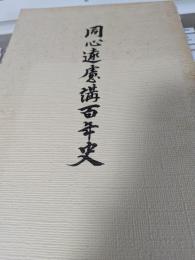 同心遠慮講百年史